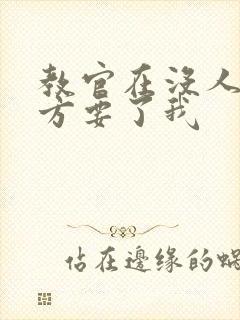 教官在没人
方要了我
佔在邊缘的蜗